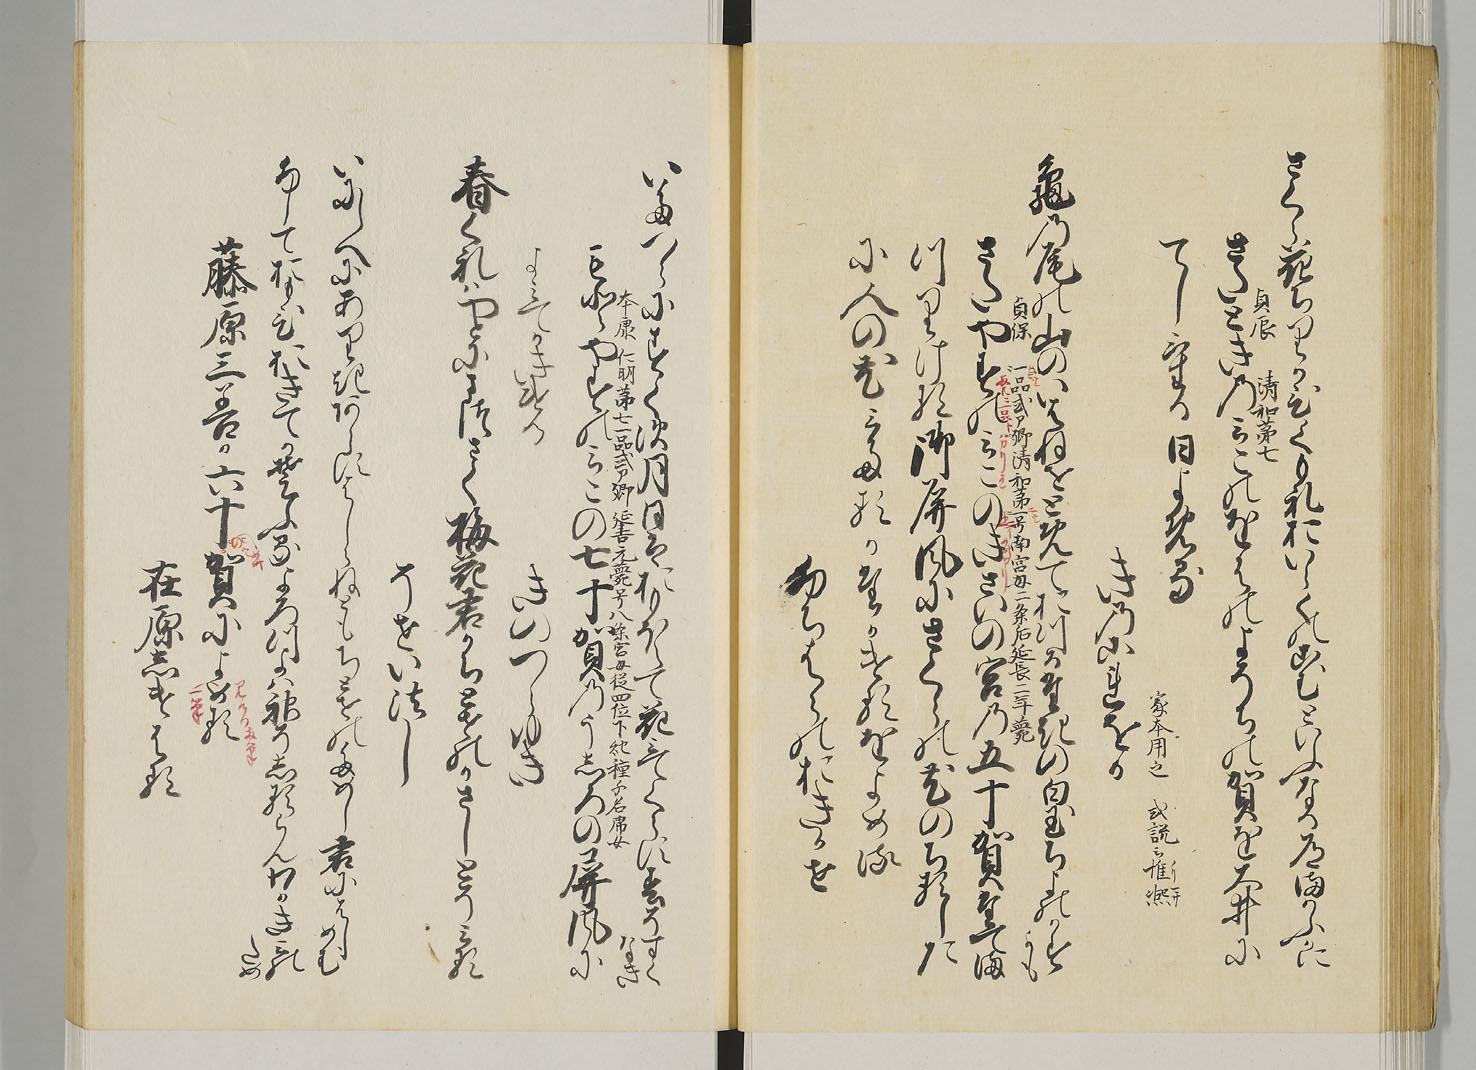 さくら花ちりかひくもれおいらくのこむといふなる道まかふかに
さたときのみこのをはのよそちの賀を大井に
貞辰 清和第七
てしける日よめる
きのこれをか
家本用之 或説云惟熙
亀の尾の山のいはねをとめておつるたきの白玉ちよのかす
かも
さたやすのみこのきさいの宮の五十賀たてま
貞保 一品式部卿清和第一号南宮母二条后延長二年薨
つりける御屏風にさくらの花のちるした
に人の花見たるかたかけるをよめる
ふちはらのおきかせ
いたつらにすくす月日はおもほえて花見てくらす春そすく
なき
もとやすのみこの七十賀のうしろの屏風に
本康 仁明第七一品式部卿延喜元薨号八条宮母従四位下紀種子名席女
よみてかきける
きのつらゆき
春くれはやとにまつさく梅花君かちとせのかさしとそみる
そせい法し
いにしへにありきあらすはしらねともちとせのためし君にはしめむ
ふしておもひおきてかそふるよろつよは神そしるらんわかきみの
ため
藤原三善か六十賀によめる
在原しけはる